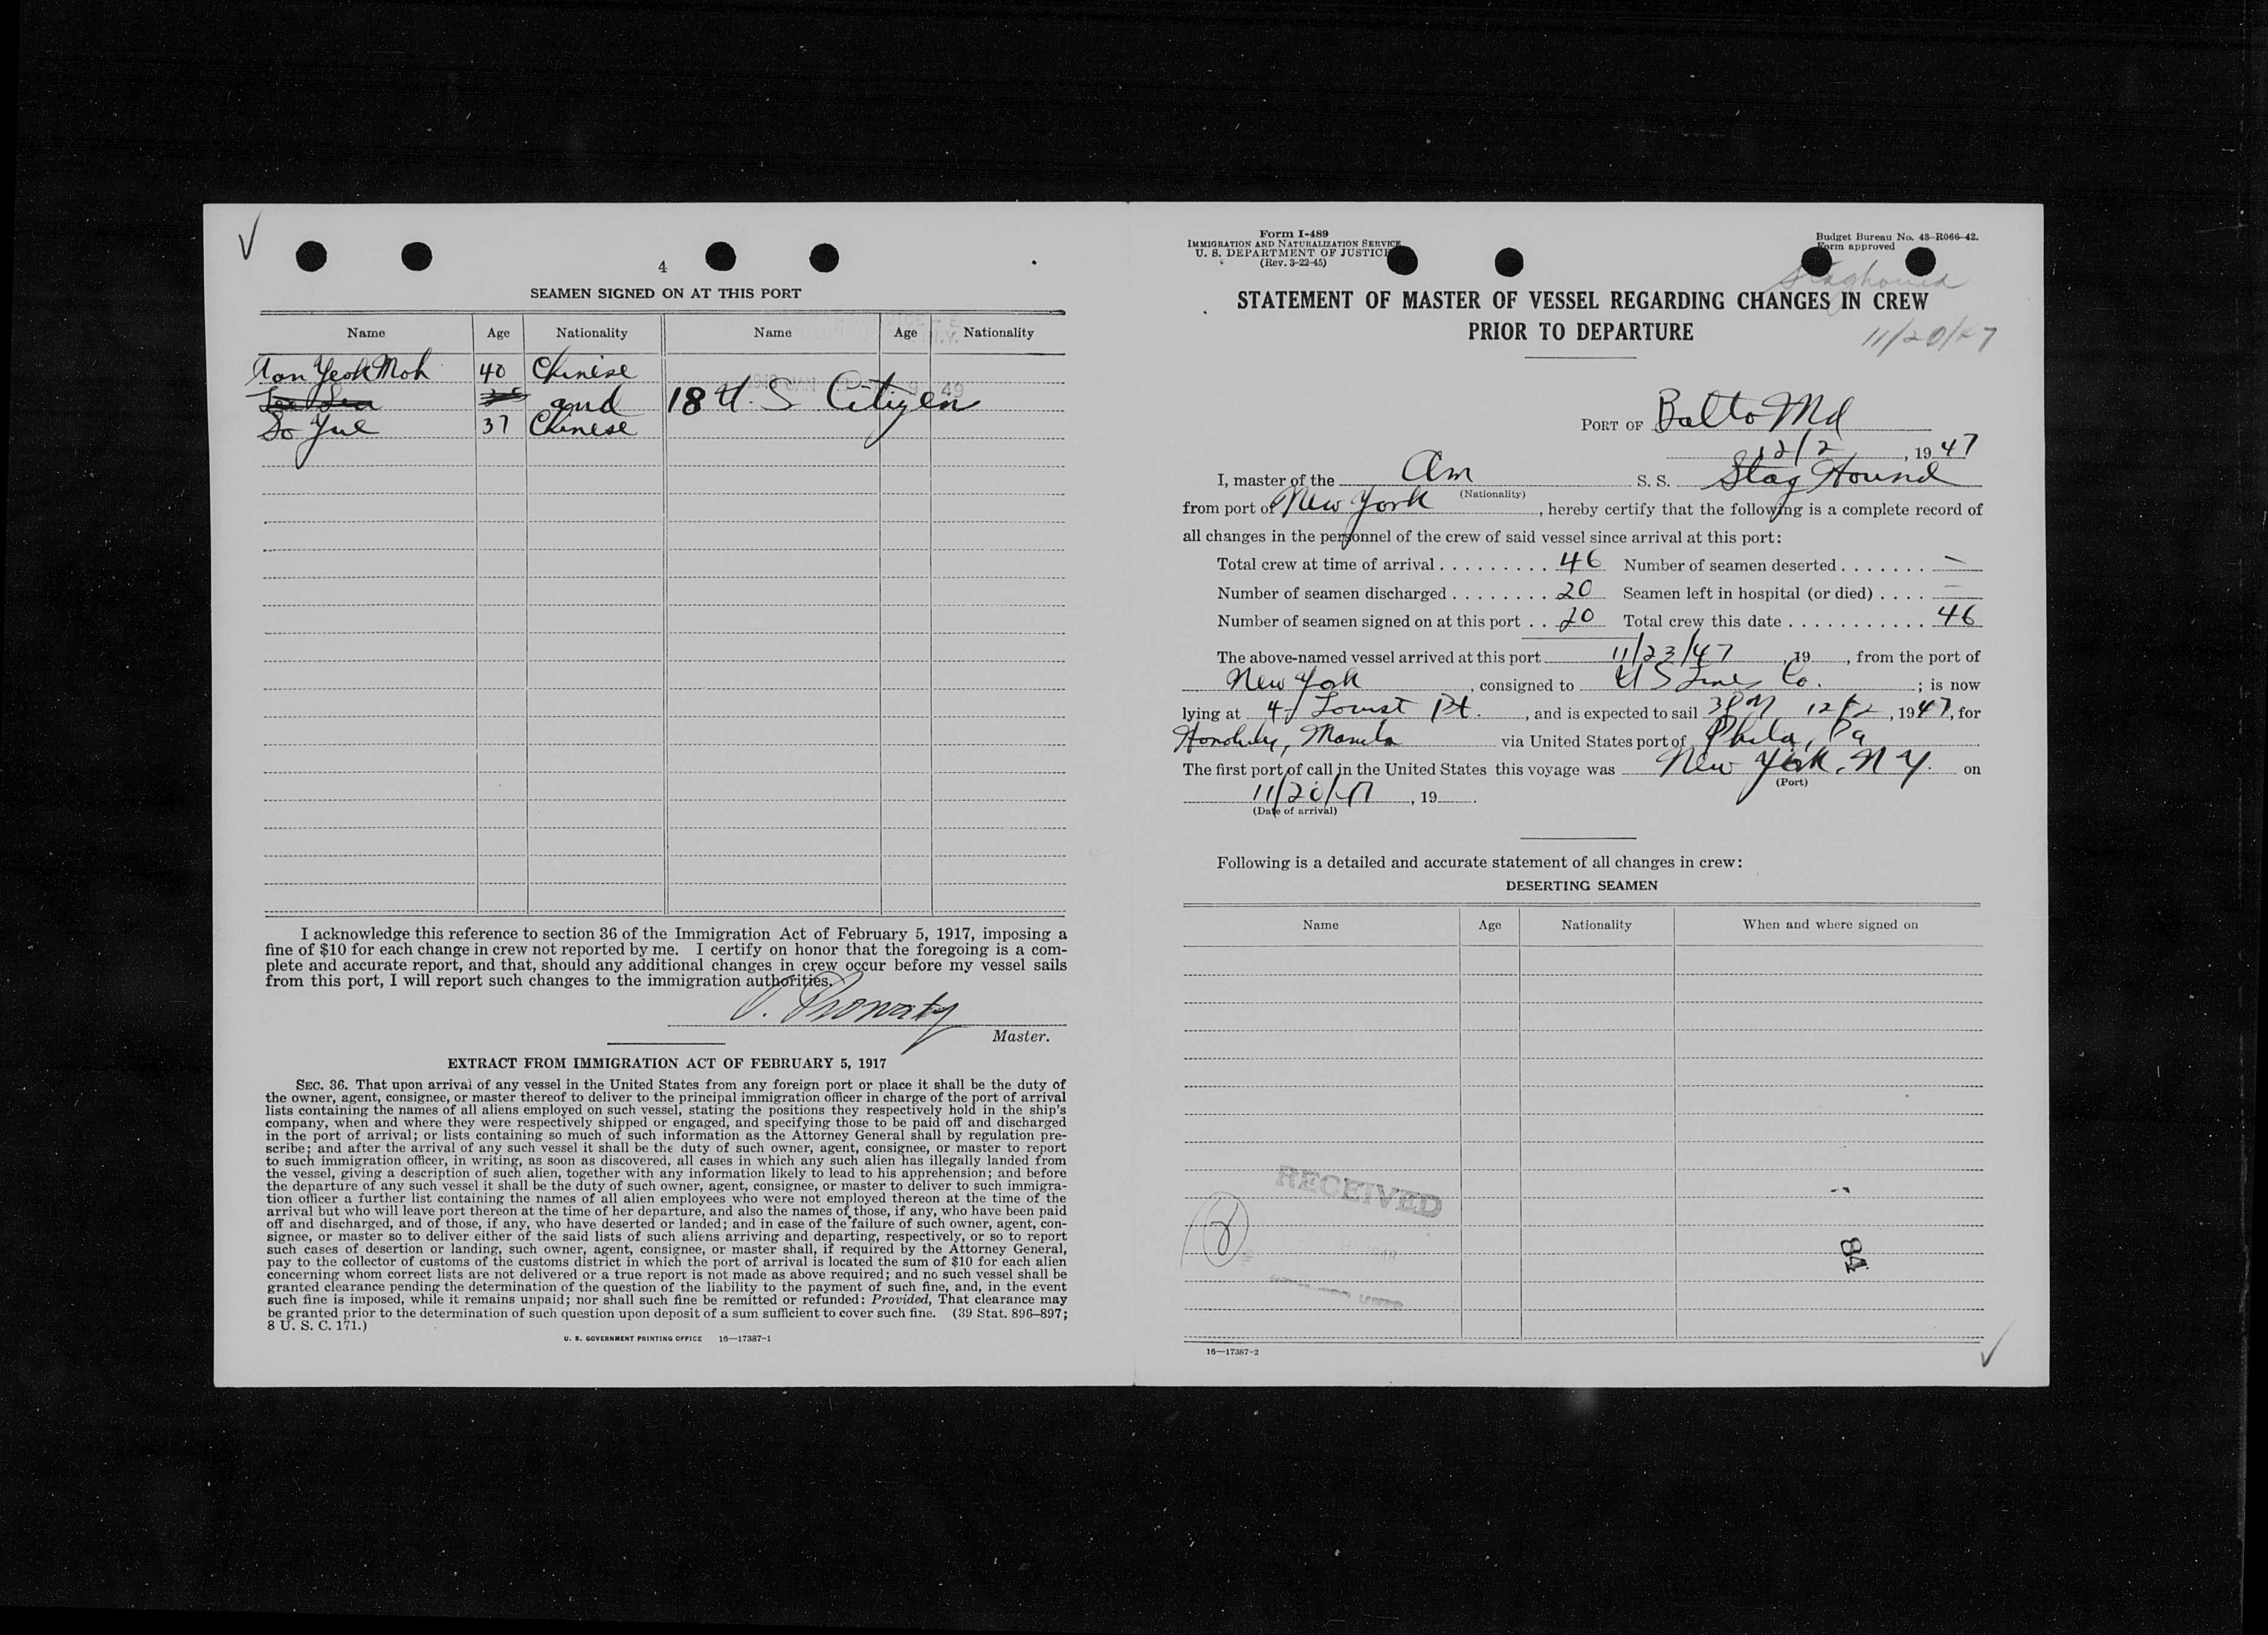 4
SEAMEN SIGNED ON AT THIS PORT
Name Age Nationality Name Age Nationality
Tan Yeok Moh 40 Chinese
and 18 U.S Citizen
So Yue 37 Chinese
I acknowledge this reference to section 36 of the Immigration Act of February 5, 1917, imposing a
fine of $10 for each change in crew not reported by me. I certify on honor that the foregoing is a com-
plete and accurate report, and that, should any additional changes in crew occur before my vessel sails
from this port, I will report such changes to the immigration authorities.
Master.
EXTRACT FROM IMMIGRATION ACT OF FEBRUARY 5, 1917
SEC. 36. That upon arrival of any vessel in the United States from any foreign port or place it shall be the duty of
the owner, agent, consignee, or master thereof to deliver to the principal immigration officer in charge of the port of arrival
lists containing the names of all aliens employed on such vessel, stating the positions they respectively hold in the ship's
company, when and where they were respectively shipped or engaged, and specifying those to be paid off and discharged
in the port of arrival; or lists containing so much of such information as the Attorney General shall by regulation pre-
scribe; and after the arrival of any such vessel it shall be the duty of such owner, agent, consignee, or master to report
to such immigration officer, in writing, as soon as discovered, all cases in which any such alien has illegally landed from
the vessel, giving a description of such alien, together with any information likely to lead to his apprehension; and before
the departure of any such vessel it shall be the duty of such owner, agent, consignee, or master to deliver to such immigra-
tion officer a further list containing the names of all alien employees who were not employed thereon at the time of the
arrival but who will leave port thereon at the time of her departure, and also the names of those, if any, who have been paid
off and discharged, and of those, if any, who have deserted or landed; and in case of the failure of such owner, agent, con-
signee, or master so to deliver either of the said lists of such aliens arriving and departing, respectively, or so to report
such cases of desertion or landing, such owner, agent, consignee, or master shall, if required by the Attorney General,
pay to the collector of customs of the customs district in which the port of arrival is located the sum of $10 for each alien
concerning whom correct lists are not delivered or a true report is not made as above required; and no such vessel shall be
granted clearance pending the determination of the question of the liability to the payment of such fine, and, in the event
such fine is imposed, while it remains unpaid; nor shall such fine be remitted or refunded: Provided, That clearance may
be granted prior to the determination of such question upon deposit of a sum sufficient to cover such fine. (39 Stat. 896–897;
8 U. S. C. 171.)
U. S. GOVERNMENT PRINTING OFFICE 16—17387-1
Form I-489
IMMIGRATION AND NATURALIZATION SERVICE
U. S. DEPARTMENT OF JUSTICE
(Rev. 3-22-45)
Budget Bureau No. 43-R066-42.
Form approved
Staghound
STATEMENT OF MASTER OF VESSEL REGARDING CHANGES IN CREW
PRIOR TO DEPARTURE
11/20/47
PORT OF Balto Md
12/2, 1947
I, master of the Am S. S. Stag Hound
(Nationality)
from port of New York, hereby certify that the following is a complete record of
all changes in the personnel of the crew of said vessel since arrival at this port:
Total crew at time of arrival . . . . . . . . . 46 Number of seamen deserted . . . . . . . —
Number of seamen discharged . . . . . . . . 20 Seamen left in hospital (or died) . . . . —
Number of seamen signed on at this port . . 20 Total crew this date . . . . . . . . . . . 46
The above-named vessel arrived at this port 11/23/47, 19 , from the port of
New York, consigned to U S Lines Co. ; is now
lying at 4 Locust Pt., and is expected to sail 3 PM 12/2, 1947, for
Honolulu, Manila via United States port of Phila, Pa
The first port of call in the United States this voyage was New York, N Y. on
(Port)
11/20/47, 19 .
(Date of arrival)
Following is a detailed and accurate statement of all changes in crew:
DESERTING SEAMEN
Name Age Nationality When and where signed on
RECEIVED
84
16—17387-2